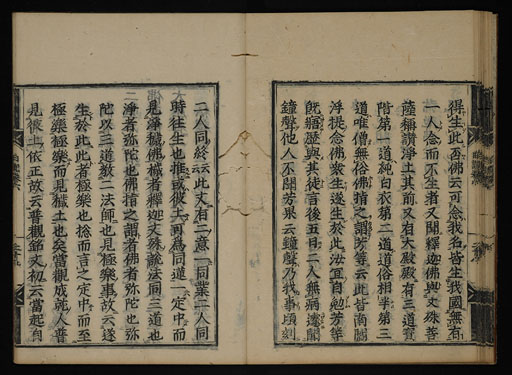 得生此否佛云可念我名皆生我國無有
一人念而不生者又聞釋迦佛與文殊菩
薩稱讚淨土其前又有大殿殿有三道寶
階第一道純白衣第二道道俗相半第三
道唯僧無俗佛指之謂芳等云此皆南閻
浮提念佛衆生遂生於此汝宜自勉芳等
既寤歷與其徒言後五日二人無病遽聞
鐘聲他人不聞芳果云鐘聲乃我事頃刻
二人同終云云此文有二意一同業二人同
時往生也推或彼土可爲同道一定中而
見淨穢佛穢者釋迦文殊說法同三道也
二淨者弥陀也佛指之謂者佛者弥陀也弥
陀以三道數二法師也見極樂事故云遂
生於此此者極樂也捨而言之定中而至
極樂極樂而見穢土也矣當觀成就人普
見依土依正故云普觀節文初云當起自